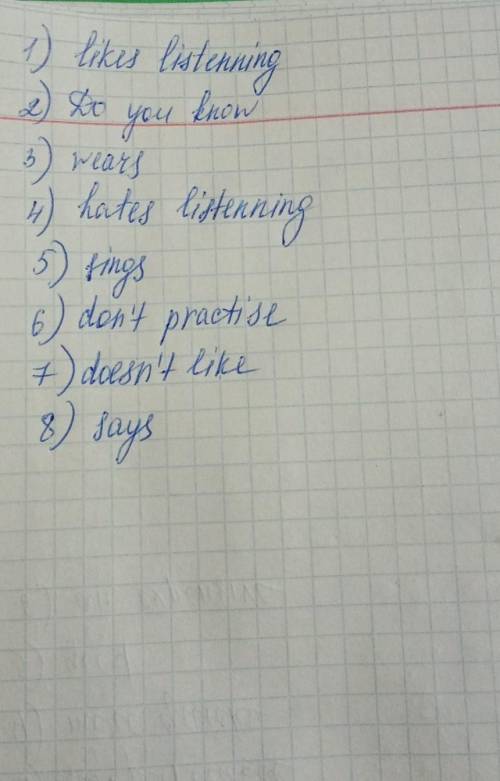 1) likes listenning
2) Do you know
3) wears
4) hates listenning
5) sings
6) don't practise
7) doesn't like
8) says